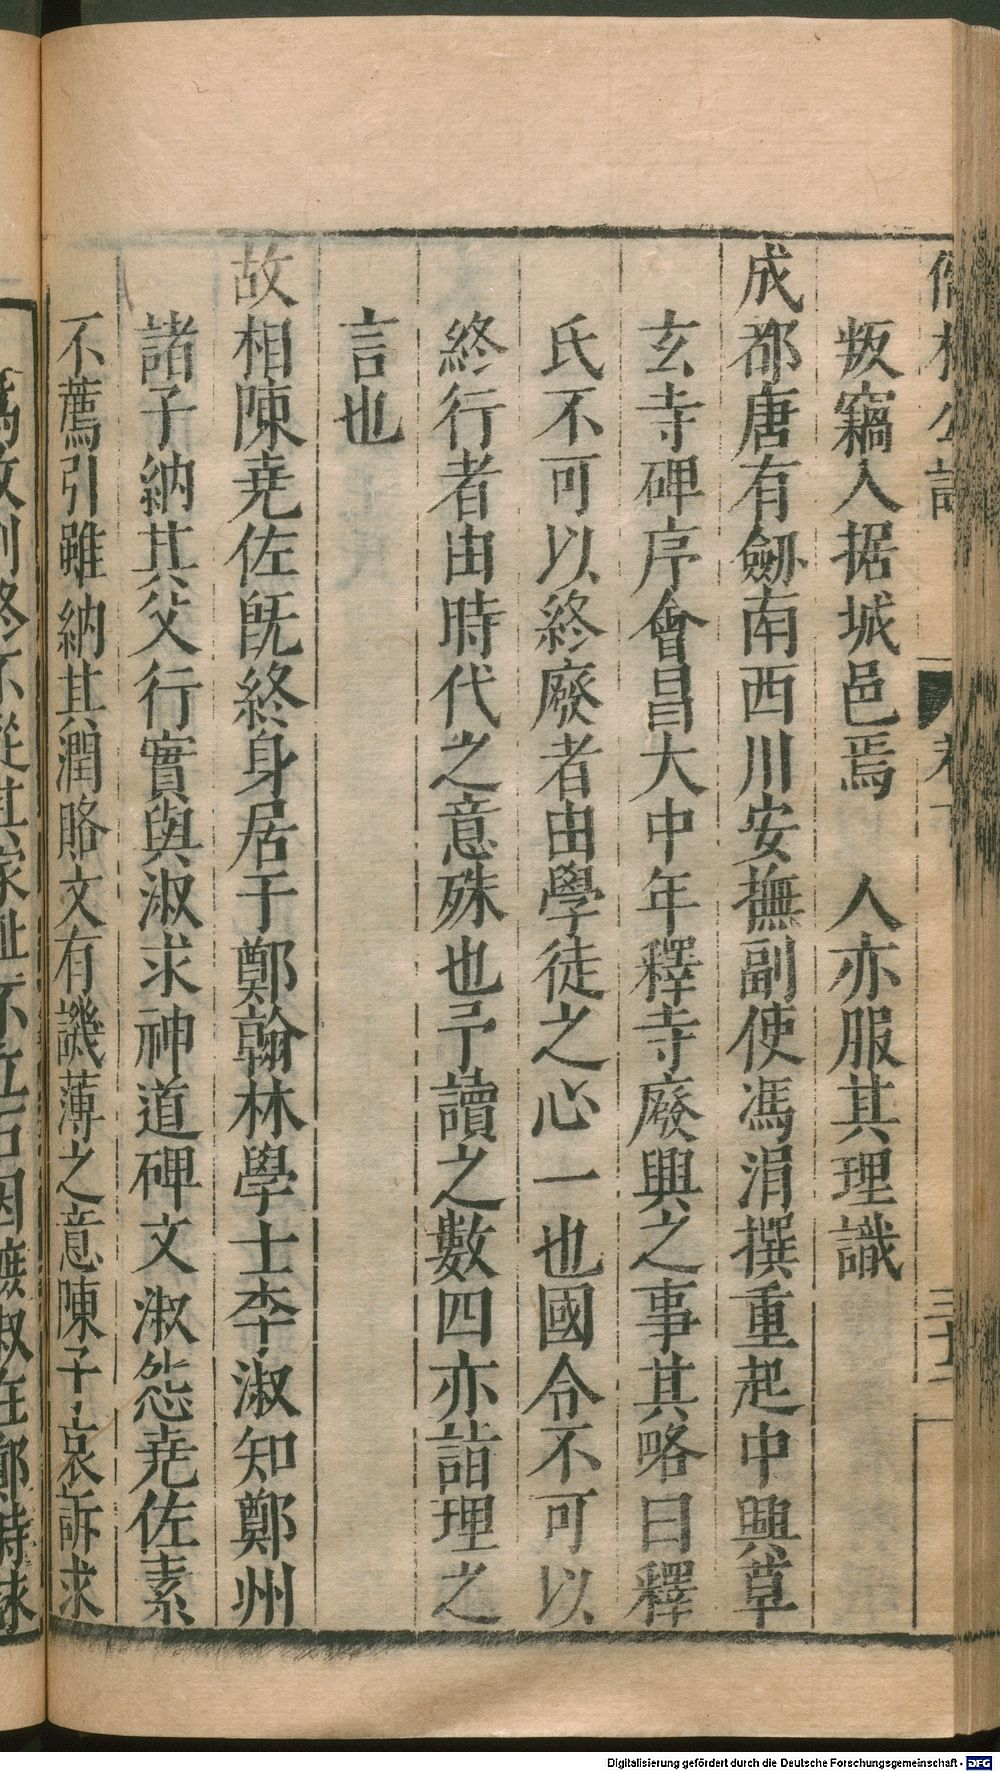 叛竊入据城邑焉　人亦服其理識
成都唐有劒南西川安撫副使馮涓撰重起中興草
玄寺碑序會昌大中年釋寺廢興之事其略曰釋
氏不可以終廢者由學徒之心一也國令不可以
終行者由時代之意殊也予讀之數四亦詣理之
言也
故相陳堯佐旣終身居于鄭翰林學士李淑知鄭州
諸子納其父行實與淑求神道碑文淑怨堯佐素
不薦引雖納其潤賂文有譏薄之意陳子哀訴求
Digitalisierung gefördert durch die Deutsche Forschungsgemeinschaft - DFG